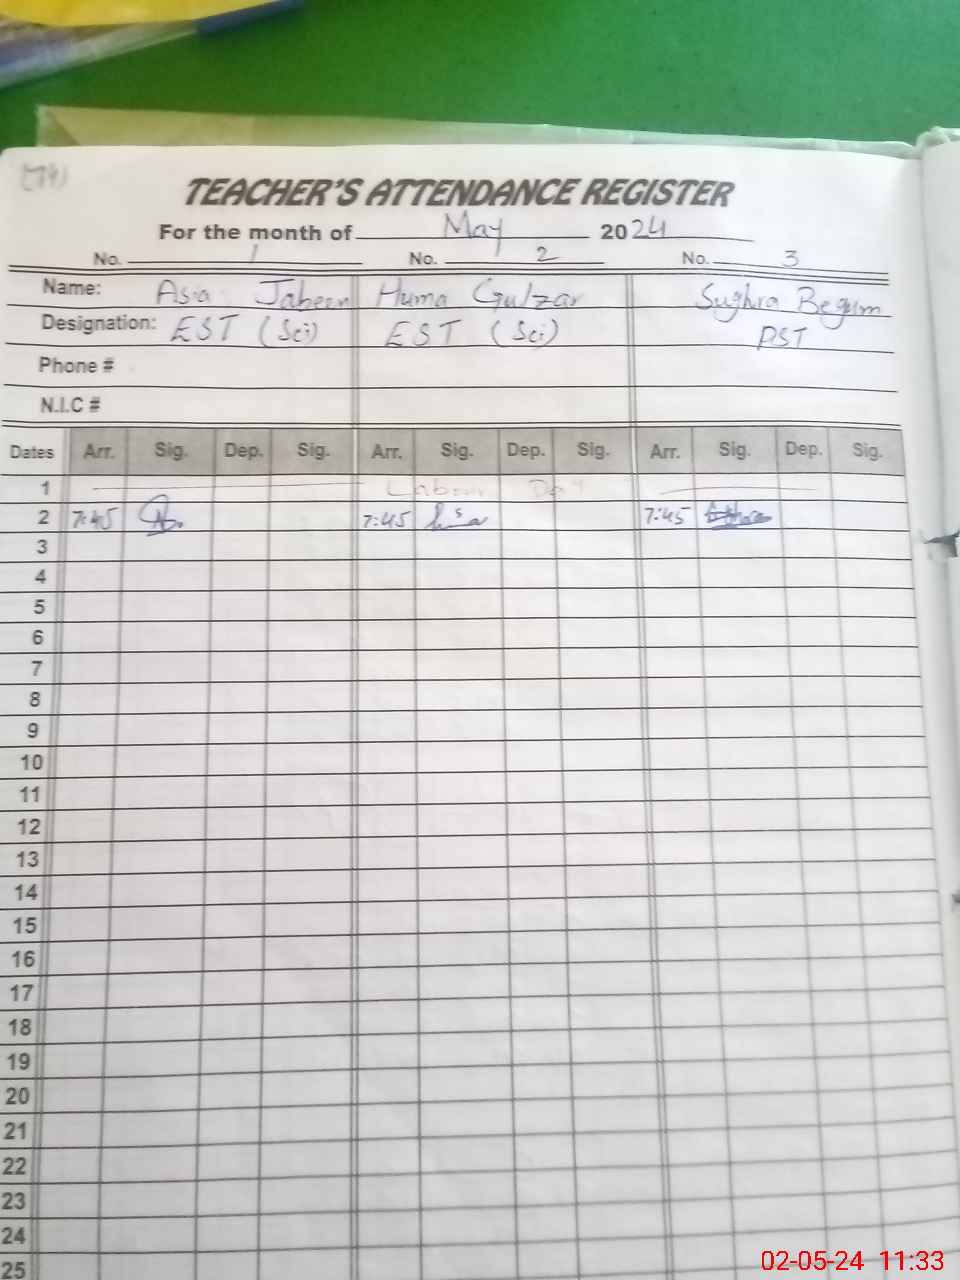 (74)
TEACHER'S ATTENDANCE REGISTER
For the month of May 2024
No. 1 No. 2 No. 3
Name: Asia Jabeen Huma Gulzar Sughra Begum
Designation: EST (Sci) EST (Sci) PST
Phone #
N.I.C #
Dates Arr. Sig. Dep. Sig. Arr. Sig. Dep. Sig. Arr. Sig. Dep. Sig.
1 Labour Day
2 7:45 7:45 7:45
3
4
5
6
7
8
9
10
11
12
13
14
15
16
17
18
19
20
21
22
23
24
25
02-05-24 11:33